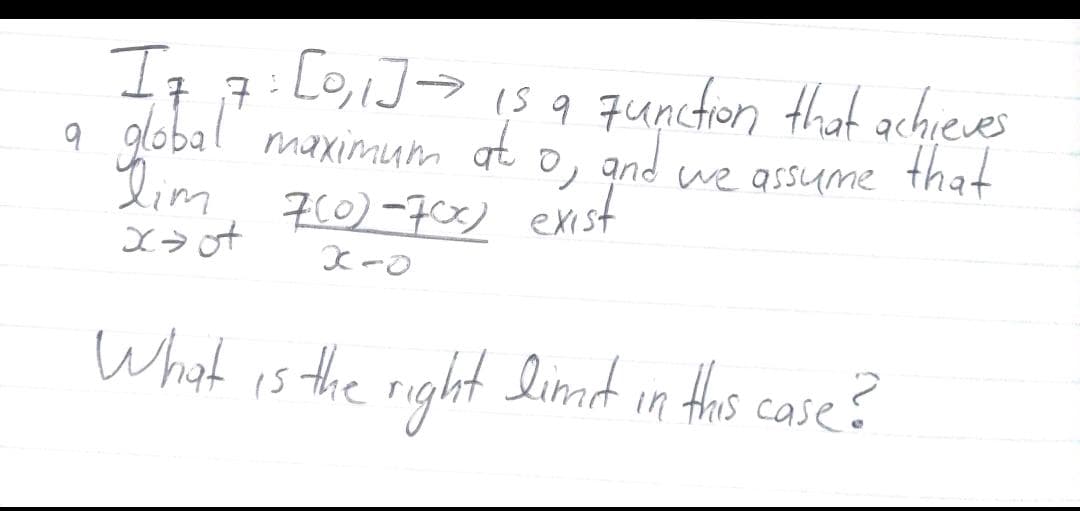 If f: [0,1]→ is a function that achieves
a global maximum at 0, and we assume that
lim x→0+ f(0)-f(x) / x-0 exist
What is the right limit in this case?